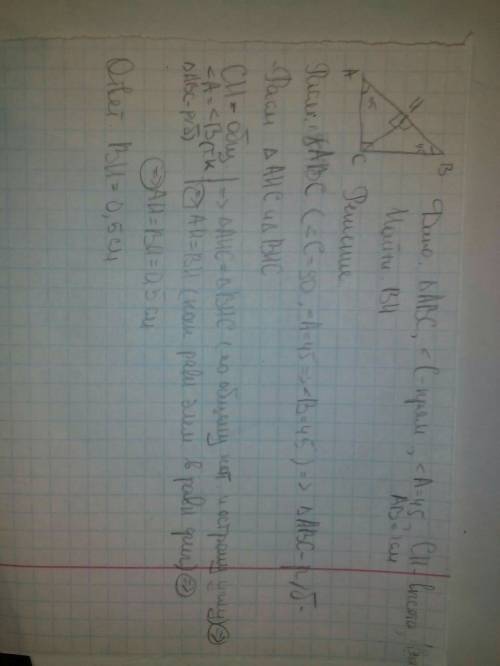 Дано: ΔABC, <C-прям, <A=45, CH-высота,
AB=1см
Найти: BH
A
45
C
H
45
B
Решение
Рассм. ΔABC (<C=90, <A=45=><B=45) => ΔABC-р/б.
Рассм ΔAHC и ΔBHC
CH-общ
<A=<B (т.к
ΔABC-р/б)
=> ΔAHC=ΔBHC (по общему кат и острому углу) =>
=> AH=BH (как равн элем в равн фигу) =>
=> AH=BH=0,5см
Ответ BH=0,5см